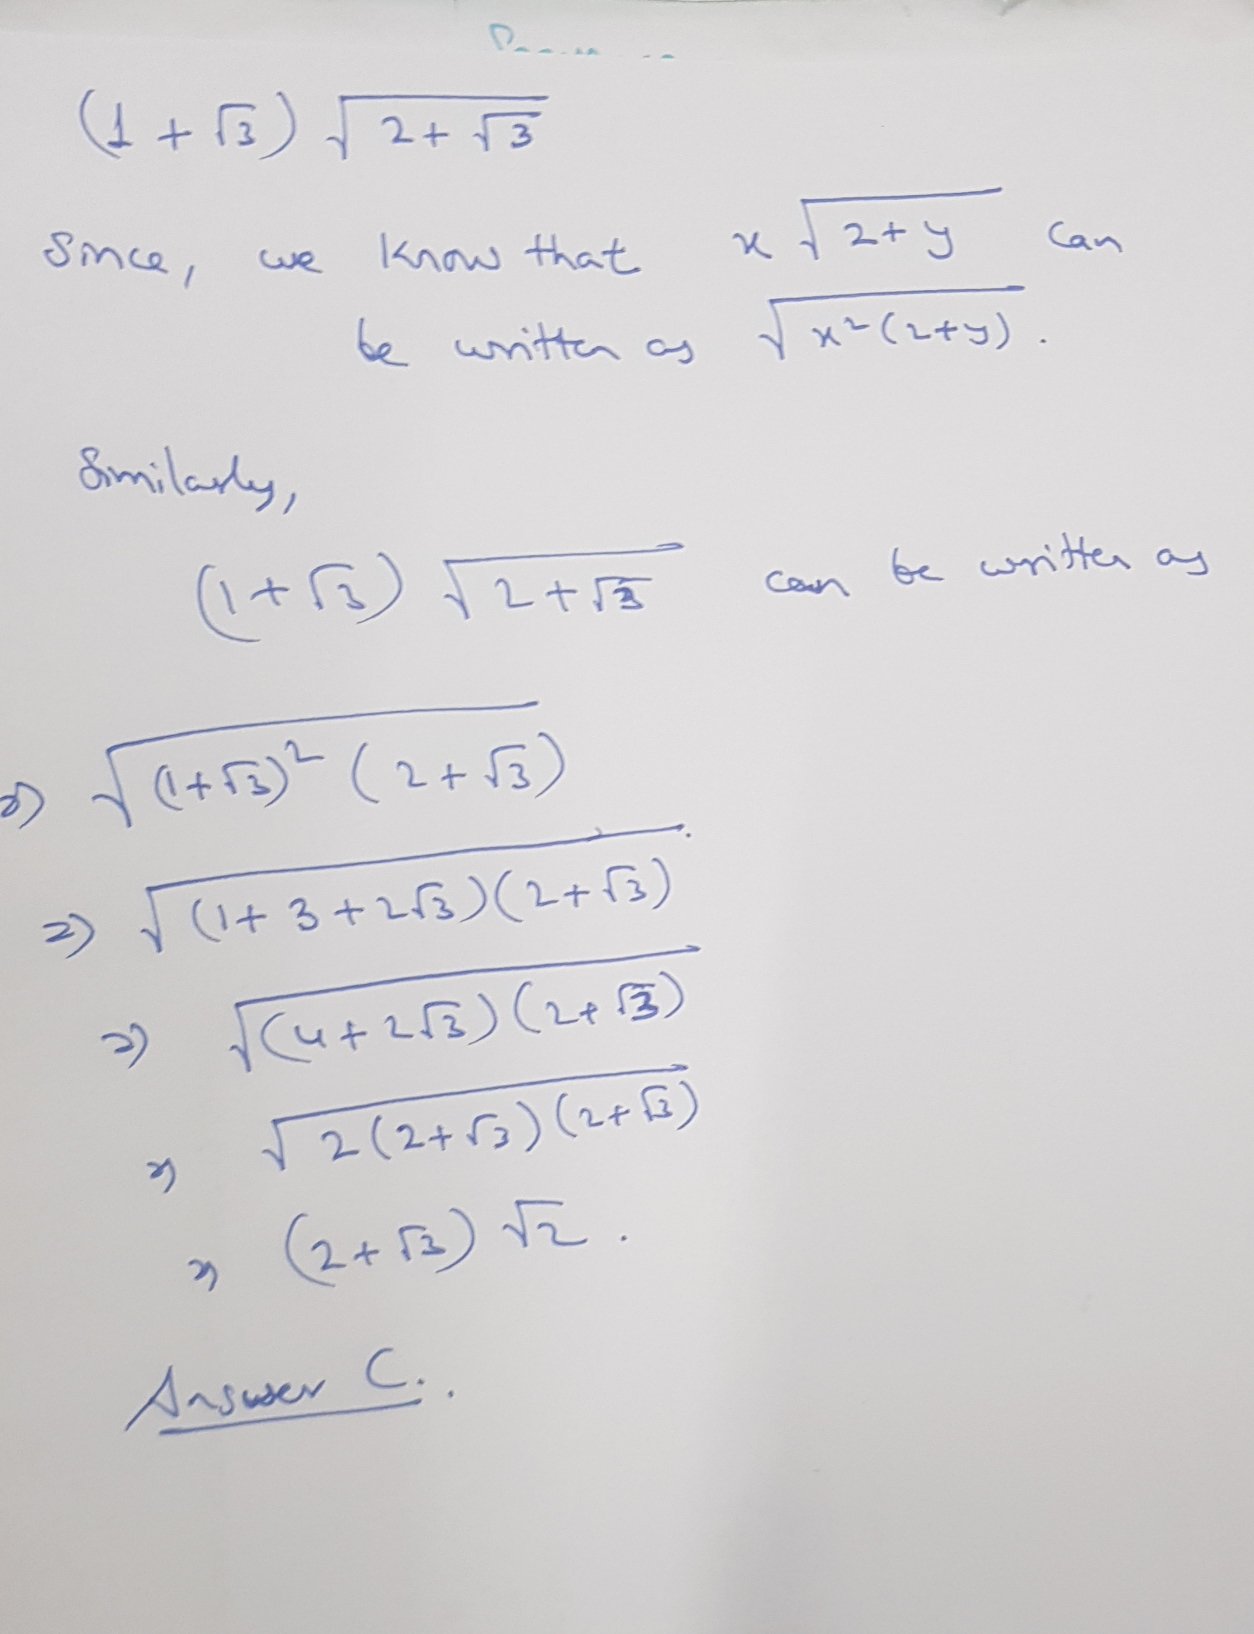 (1 + √3) √(2 + √3)
Since, we know that x √(2+y) can
be written as √(x²(2+y)).
Similarly,
(1+√3) √(2+√3) can be written as
⇒ √((1+√3)² (2+√3))
⇒ √((1+3+2√3)(2+√3))
⇒ √((4+2√3)(2+√3))
⇒ √(2(2+√3)(2+√3))
⇒ (2+√3) √2.
Answer C..